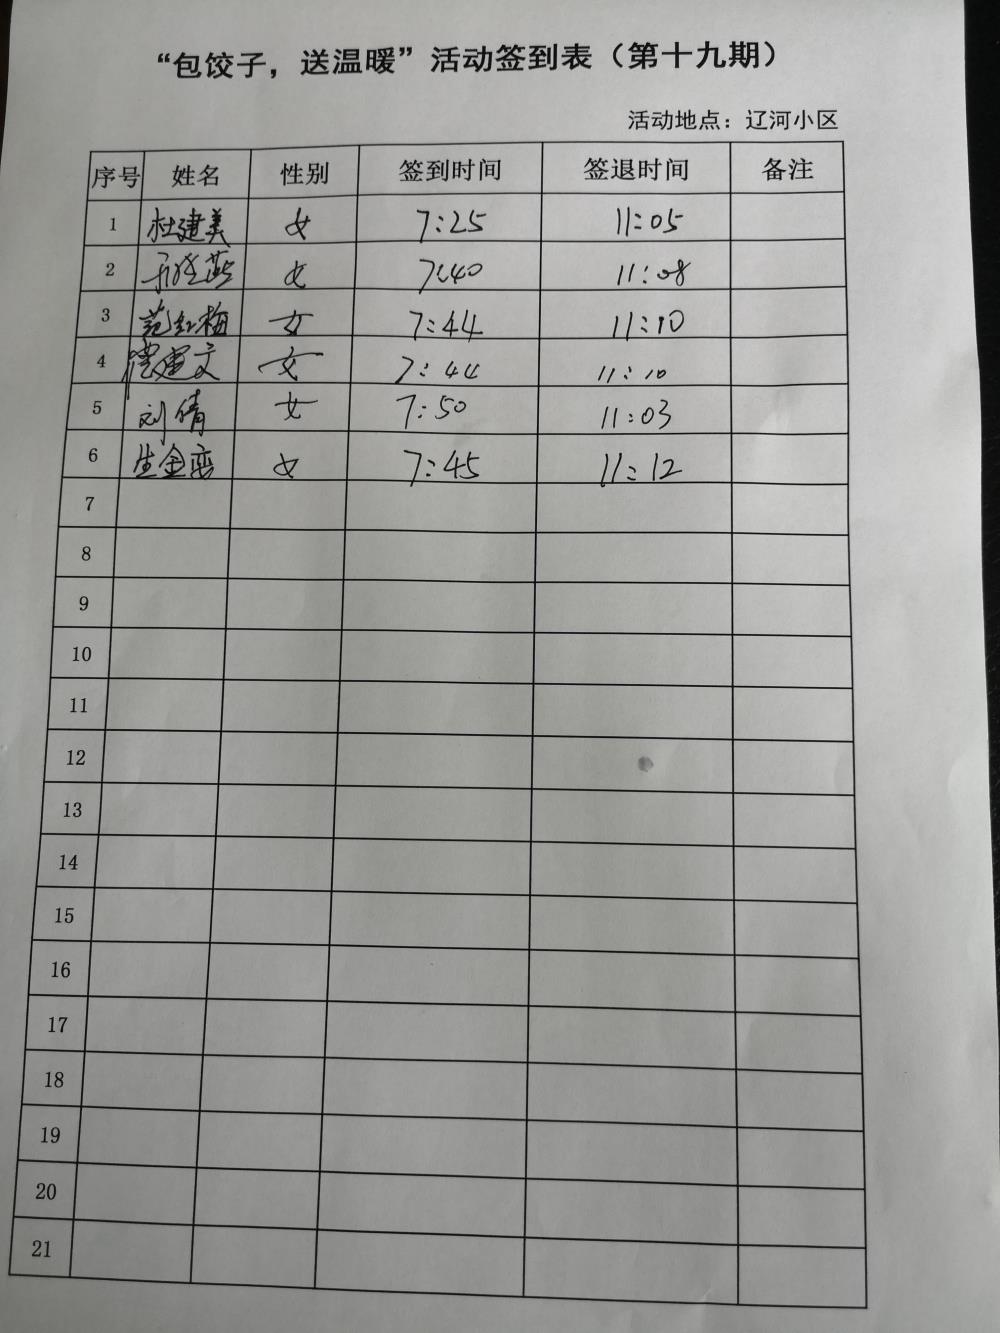 “包饺子，送温暖”活动签到表（第十九期）
活动地点：辽河小区
序号 姓名 性别 签到时间 签退时间 备注
1 杜建美 女 7:25 11:05
2 女 7:40 11:08
3 范红梅 女 7:44 11:10
4 建文 女 7:44 11:10
5 刘倩 女 7:50 11:03
6 生金 女 7:45 11:12
7
8
9
10
11
12
13
14
15
16
17
18
19
20
21